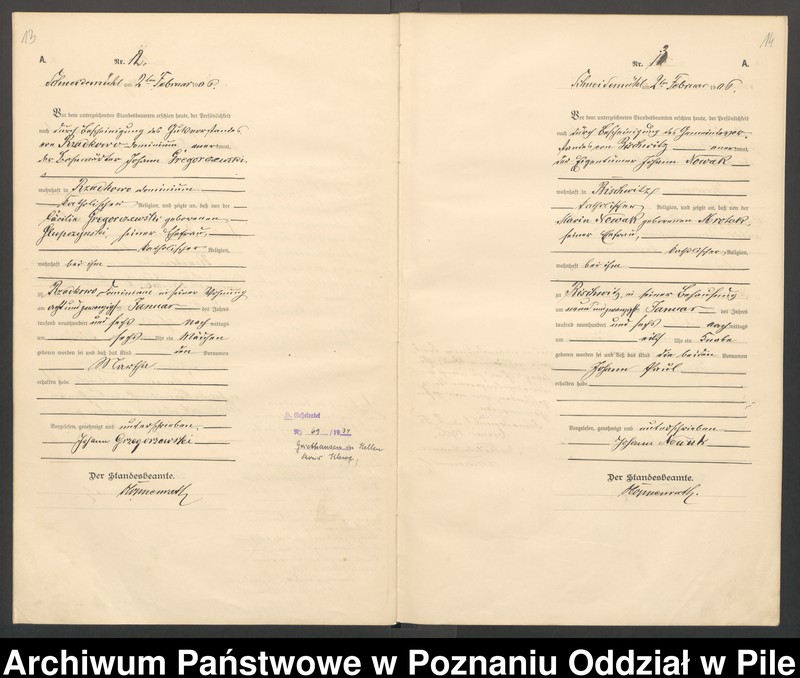 13
A.
Nr. 12.
Schneidemühl am 2ten Februar 1906.
Vor dem unterzeichneten Standesbeamten erschien heute, der Persönlichkeit
nach durch Bescheinigung des Gutsvorstandes
von Rzadkowo Dominium anerkannt,
der Johann Gregorszewski
wohnhaft in Rzadkowo Dominium
katholischer Religion, und zeigte an, daß von der
Cäcilie Gregorszewski geborenen
seiner Ehefrau,
katholischer Religion,
wohnhaft bei ihm
zu Rzadkowo Dominium in seiner Wohnung
am acht und zwanzigsten Januar des Jahres
tausend neunhundert und sechs nachmittags
um sechs Uhr ein Mädchen
geboren worden sei und daß das Kind den Vornamen
Martha
erhalten habe.
Vorgelesen, genehmigt und unterschrieben.
Johann Grzegorzewski
Der Standesbeamte.
Geheiratet
Nr. 69 /1934
in Kellen
Kreis Kleve,
14
Nr. 13
A.
Schneidemühl am 2ten Februar 1906.
Vor dem unterzeichneten Standesbeamten erschien heute, der Persönlichkeit
nach durch Bescheinigung des Gemeindevor-
standes von anerkannt,
der Eigentümer Johann Nowak
wohnhaft in
katholischer Religion, und zeigte an, daß von der
Maria Nowak geborenen
seiner Ehefrau,
katholischer Religion,
wohnhaft bei ihm
zu in seiner Behausung
am neun und zwanzigsten Januar des Jahres
tausend neunhundert und sechs nachmittags
um Uhr ein Knabe
geboren worden sei und daß das Kind die beiden Vornamen
Johann Paul
erhalten habe.
Vorgelesen, genehmigt und unterschrieben
Johann Nowak
Der Standesbeamte.
Archiwum Państwowe w Poznaniu Oddział w Pile